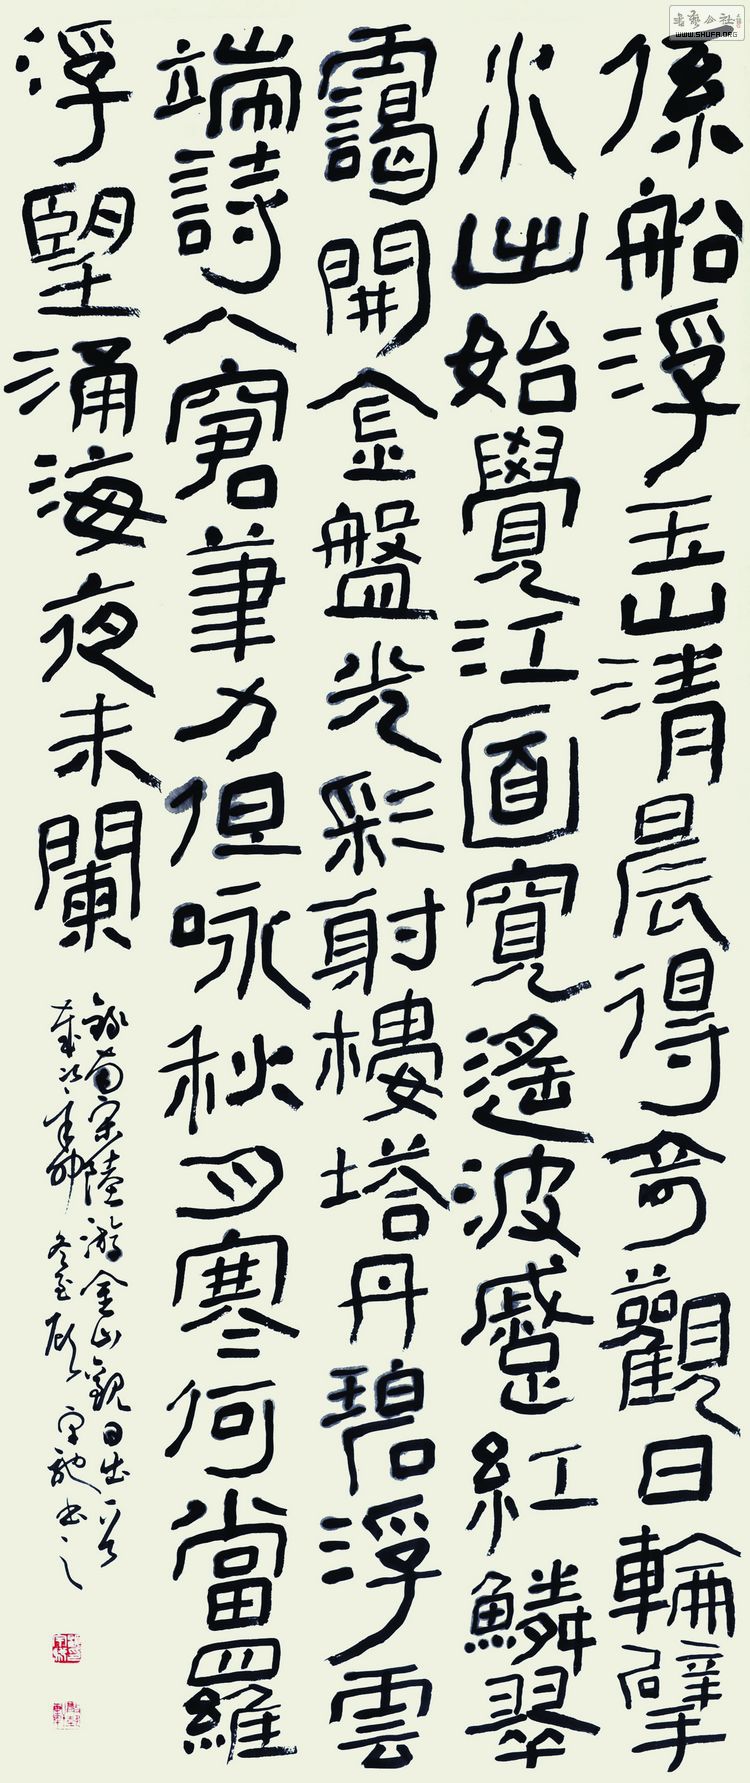 係船浮玉山清晨得奇觀日輪擘
水出始覺江面寬遙波蹙紅鱗翠
靄開金盤光彩射樓塔丹碧浮雲
端詩人窘筆力但咏秋月寒何當羅
浮望涌海夜未闌
録南宋陸游金山觀日出一首
歲次辛卯冬至書之
WWW.SHUFA.ORG